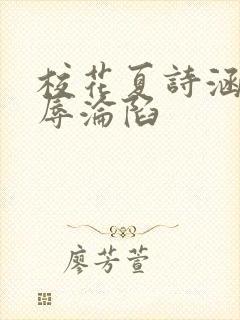 校花夏詩涵
辱淪陷
廖芳萱